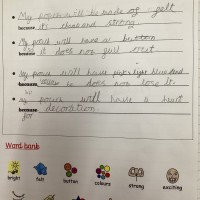 My pouch will be made of felt
because it's                and strong
My pouch will have a button
so it does not fall out.
My pouch will have                 light blue and
because yellow so does not lose it.
my pouch will have a heart
for decoration
Word bank
bright felt button colours strong exciting